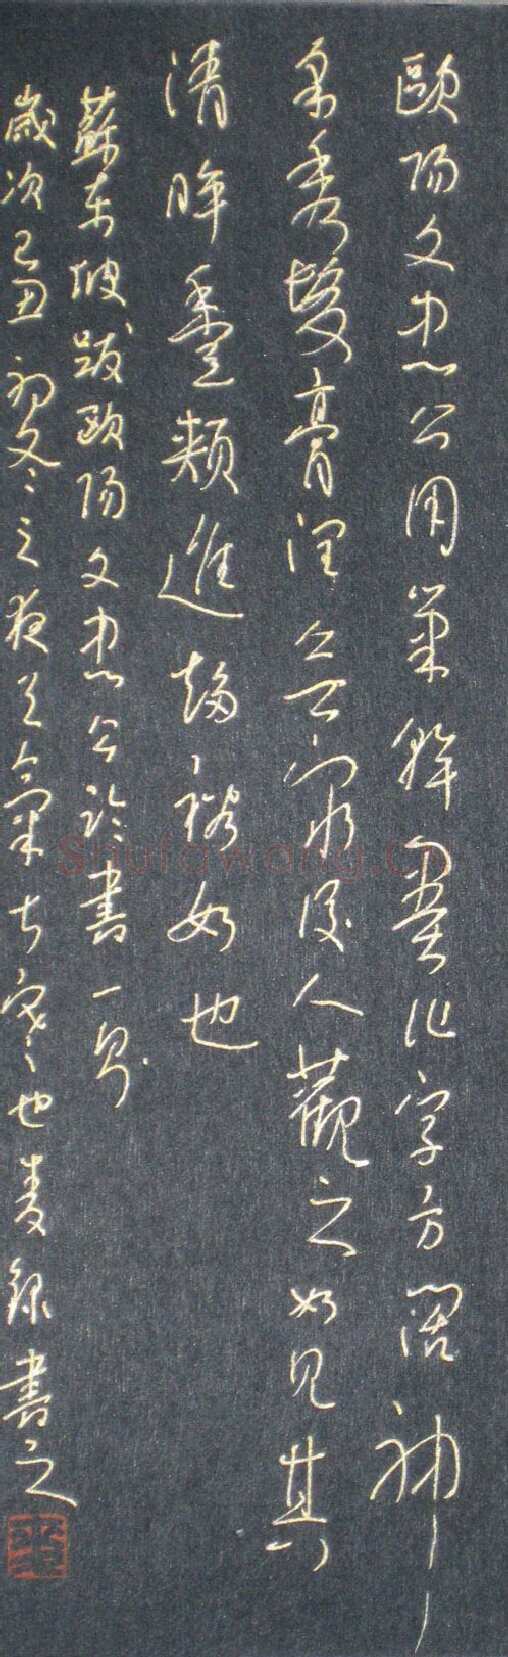 歐陽文忠公用筆乾墨作字方闊神
采秀發膏潤無窮後人觀之如見其
清眸豐頰進趨裕如也
蘇東坡跋歐陽文忠公論書一則
歲次己丑初冬之夜天氣寒也錄書之
Shufawang.Cn